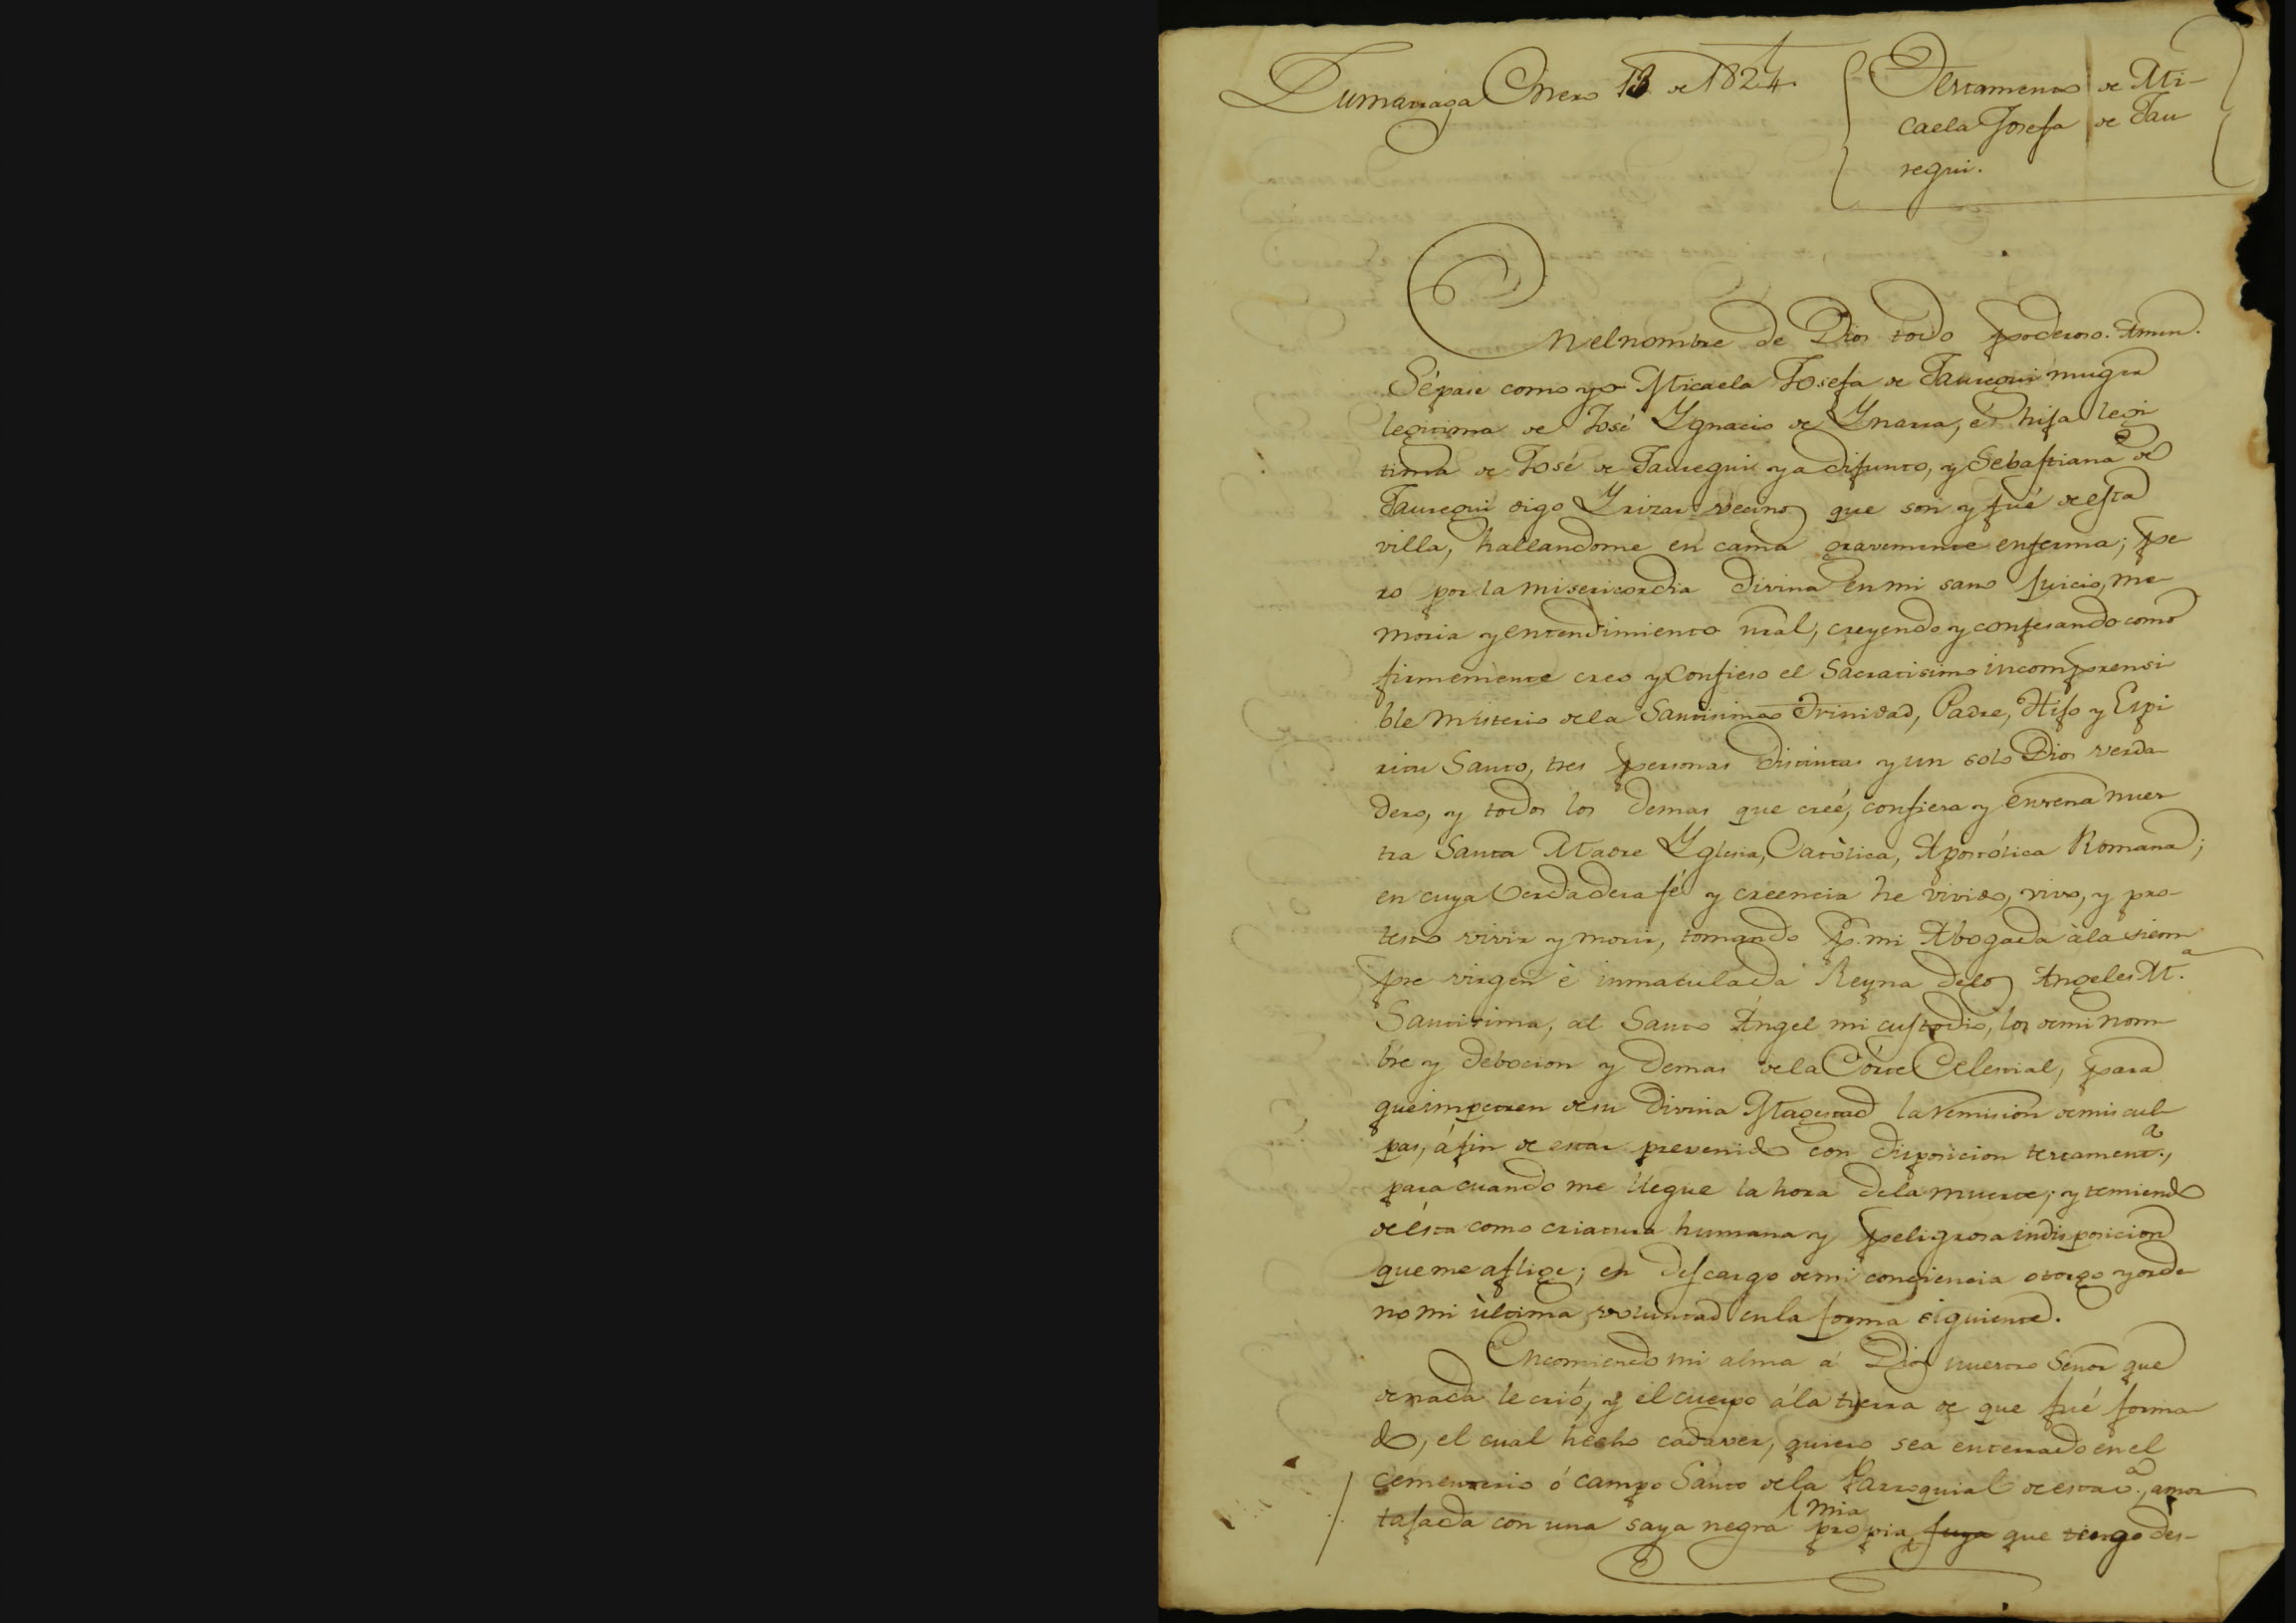 Zumarraga Enero 13 de 1824.
Testamento de Mi-
caela Josefa de Jau
regui.
En el nombre de Dios todo poderoso. Amen.
Sépase como yo Micaela Josefa de Jauregui muger
legitima de José Ygnacio de Ynarra, é hija legi
tima de José de Jauregui ya difunto, y Sebastiana de
Jauregui digo Yrizar vecinos que son y fué de esta
villa, hallandome en cama gravemente enferma; pe
ro por la misericordia Divina en mi sano juicio, me
moria y entendimiento nral, creyendo y confesando como
firmemente creo y confieso el Sacratisimo incomprensi
ble misterio de la Santisima Trinidad, Padre, Hijo y Espi
ritu Santo, tres personas distintas y un solo Dios verda
dero, y todos los demas que creé, confiesa y enseña nues
tra Santa Madre Yglesia, Catòlica, Apostólica Romana;
en cuya verdadera fé y creencia he vivido, vivo, y pro-
testo vivir y morir, tomando p. mi Abogada à la siem
pre virgen è inmaculada Reyna de los Angeles M.ª
Santisima, al Santo Ángel mi custodio, los de mi nom
bre y debocion y demas de la Córte Celestial, para
que impetren de su Divina Magestad la remision de mis cul
pas, á fin de estar prevenido con disposicion testament.ª,
para cuando me llegue la hora de la muerte; y temiendo
de ésta como criatura humana y peligrosa indisposicion
que me aflige; en descargo de mi conciencia otorgo y orde
no mi ùltima voluntad en la forma siguiente.
Encomiendo mi alma á Dios nuestro Señor que
de nada le crió, y el cuerpo á la tierra de que fué forma
do, el cual hecho cadaver, quiero sea enterrado en el
cementerio ó campo Santo de la Parroquial de esta v.ª, amor
tajada con una saya negra mia propia, suya que tengo des-